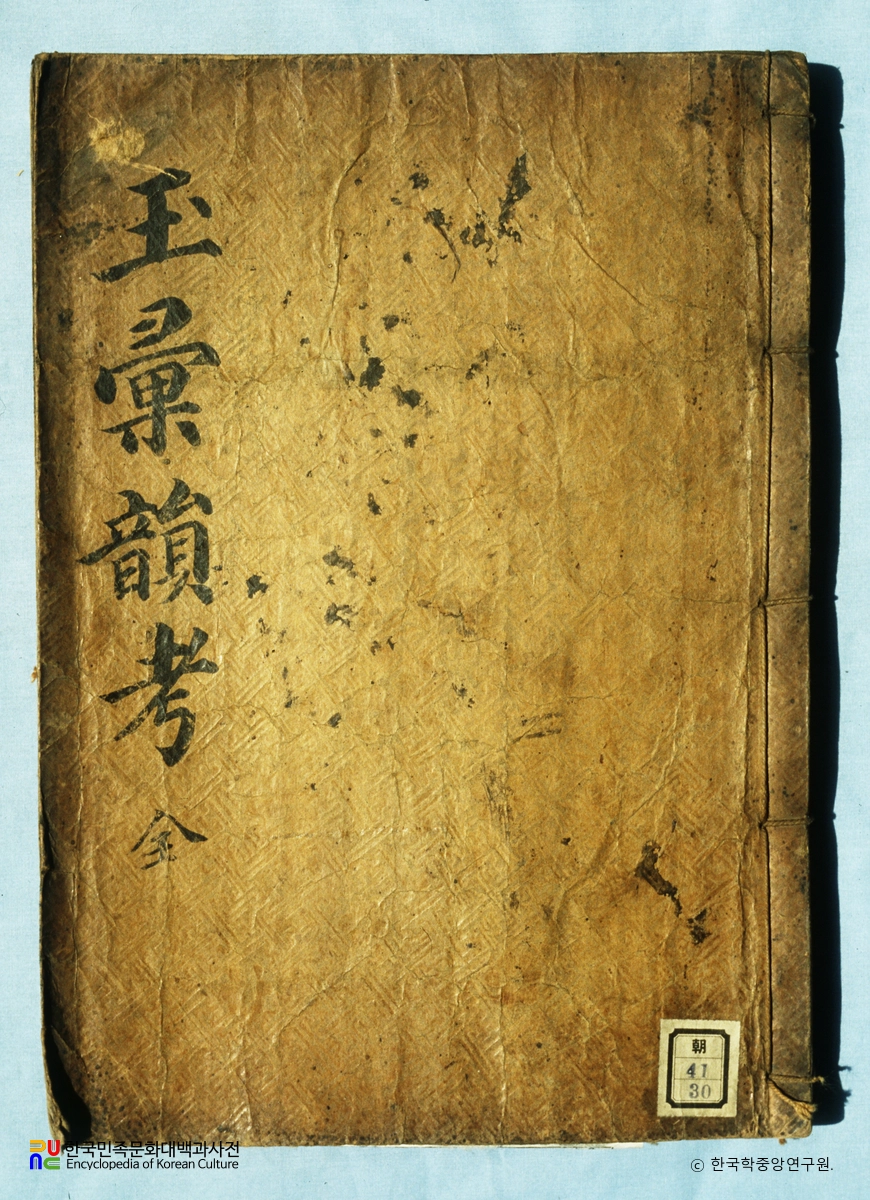 玉彙韻考 全
朝
41
30
한국민족문화대백과사전
Encyclopedia of Korean Culture
ⓒ 한국학중앙연구원.